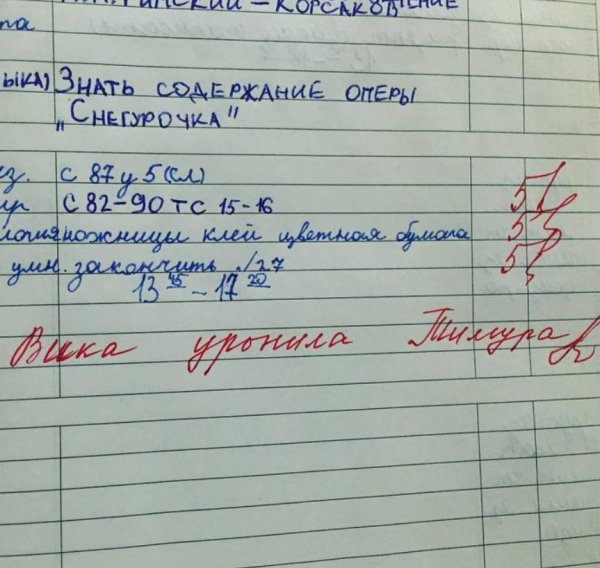 РИМСКИЙ – КОРСАКОВ
ЕНИЕ
та
ЫКА) ЗНАТЬ СОДЕРЖАНИЕ ОПЕРЫ
„СНЕГУРОЧКА"
с 87 у 5 (сл) 5
С 82–90 ТС 15–16 5
ология ножницы клей цветная бумага 5
умн. закончить
13 45 – 17 20
Вика уронила Тимура